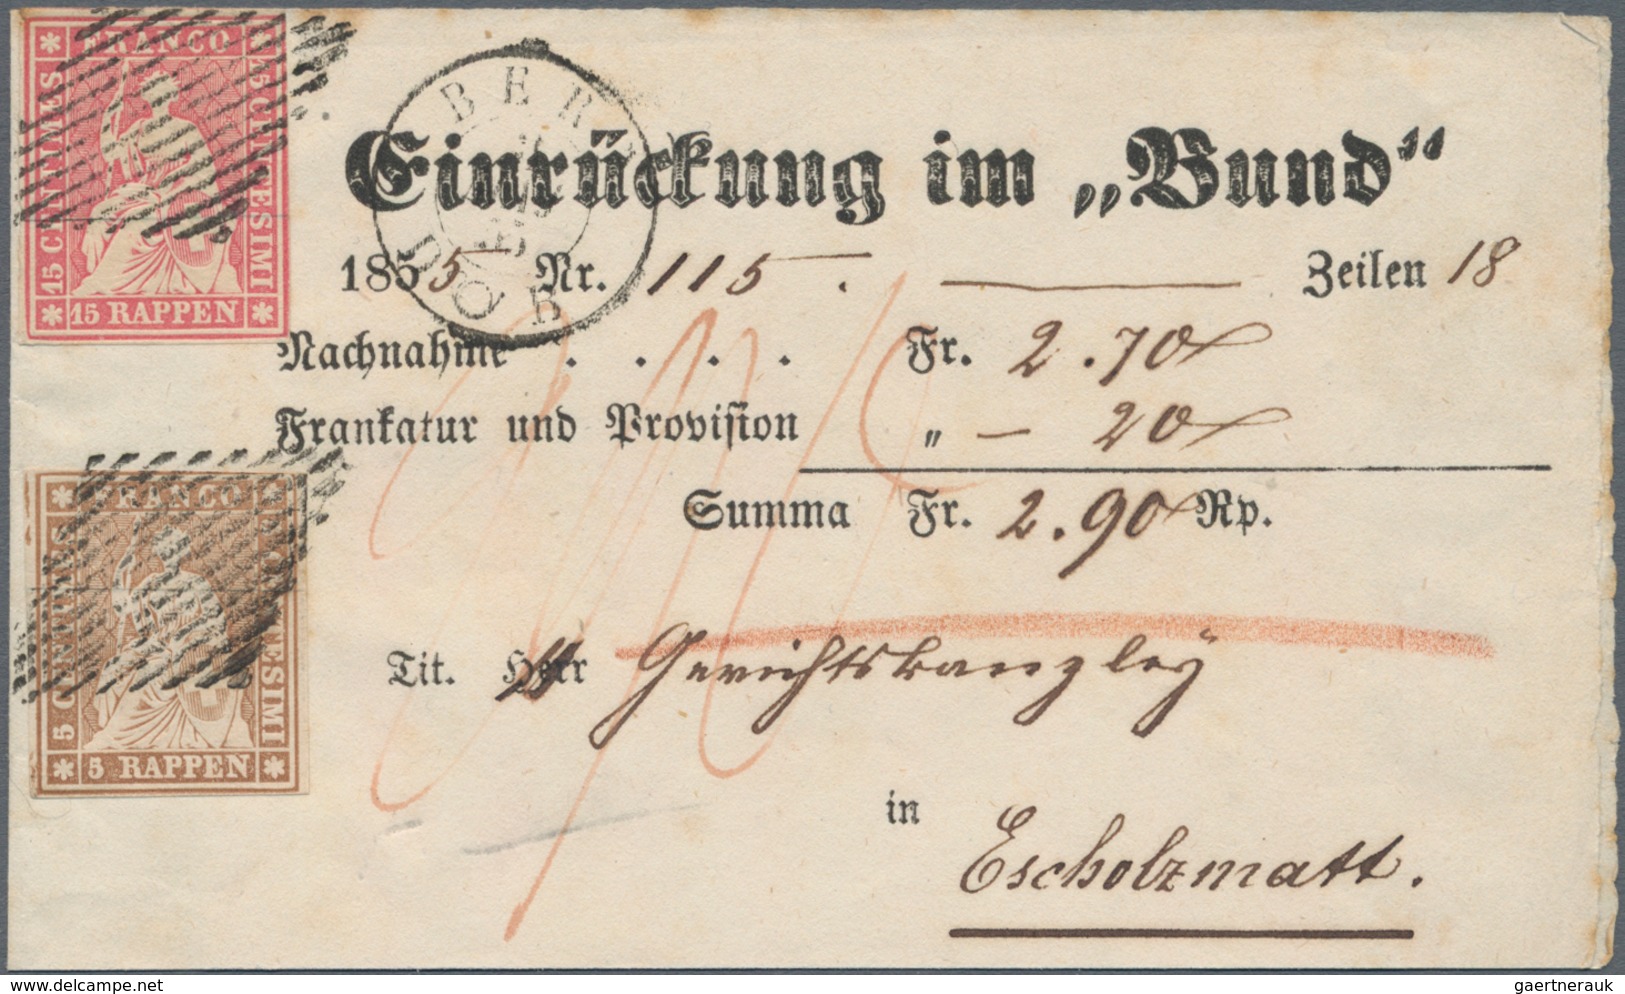 FRANCO
15 CENTIMES
15 CENTESIMI
15 RAPPEN
BER
Einrückung im „Bund“
1855 Nr. 115. Zeilen 18
Nachnahme . . . . Fr. 2.70
Frankatur und Provision „ — 20
Summa Fr. 2.90 Rp.
FRANCO
5 CENTIMES
5 CENTESIMI
5 RAPPEN
Tit. Herr Gerichtskanzley
in
Escholzmatt.
delcampe.net
gaertnerauk